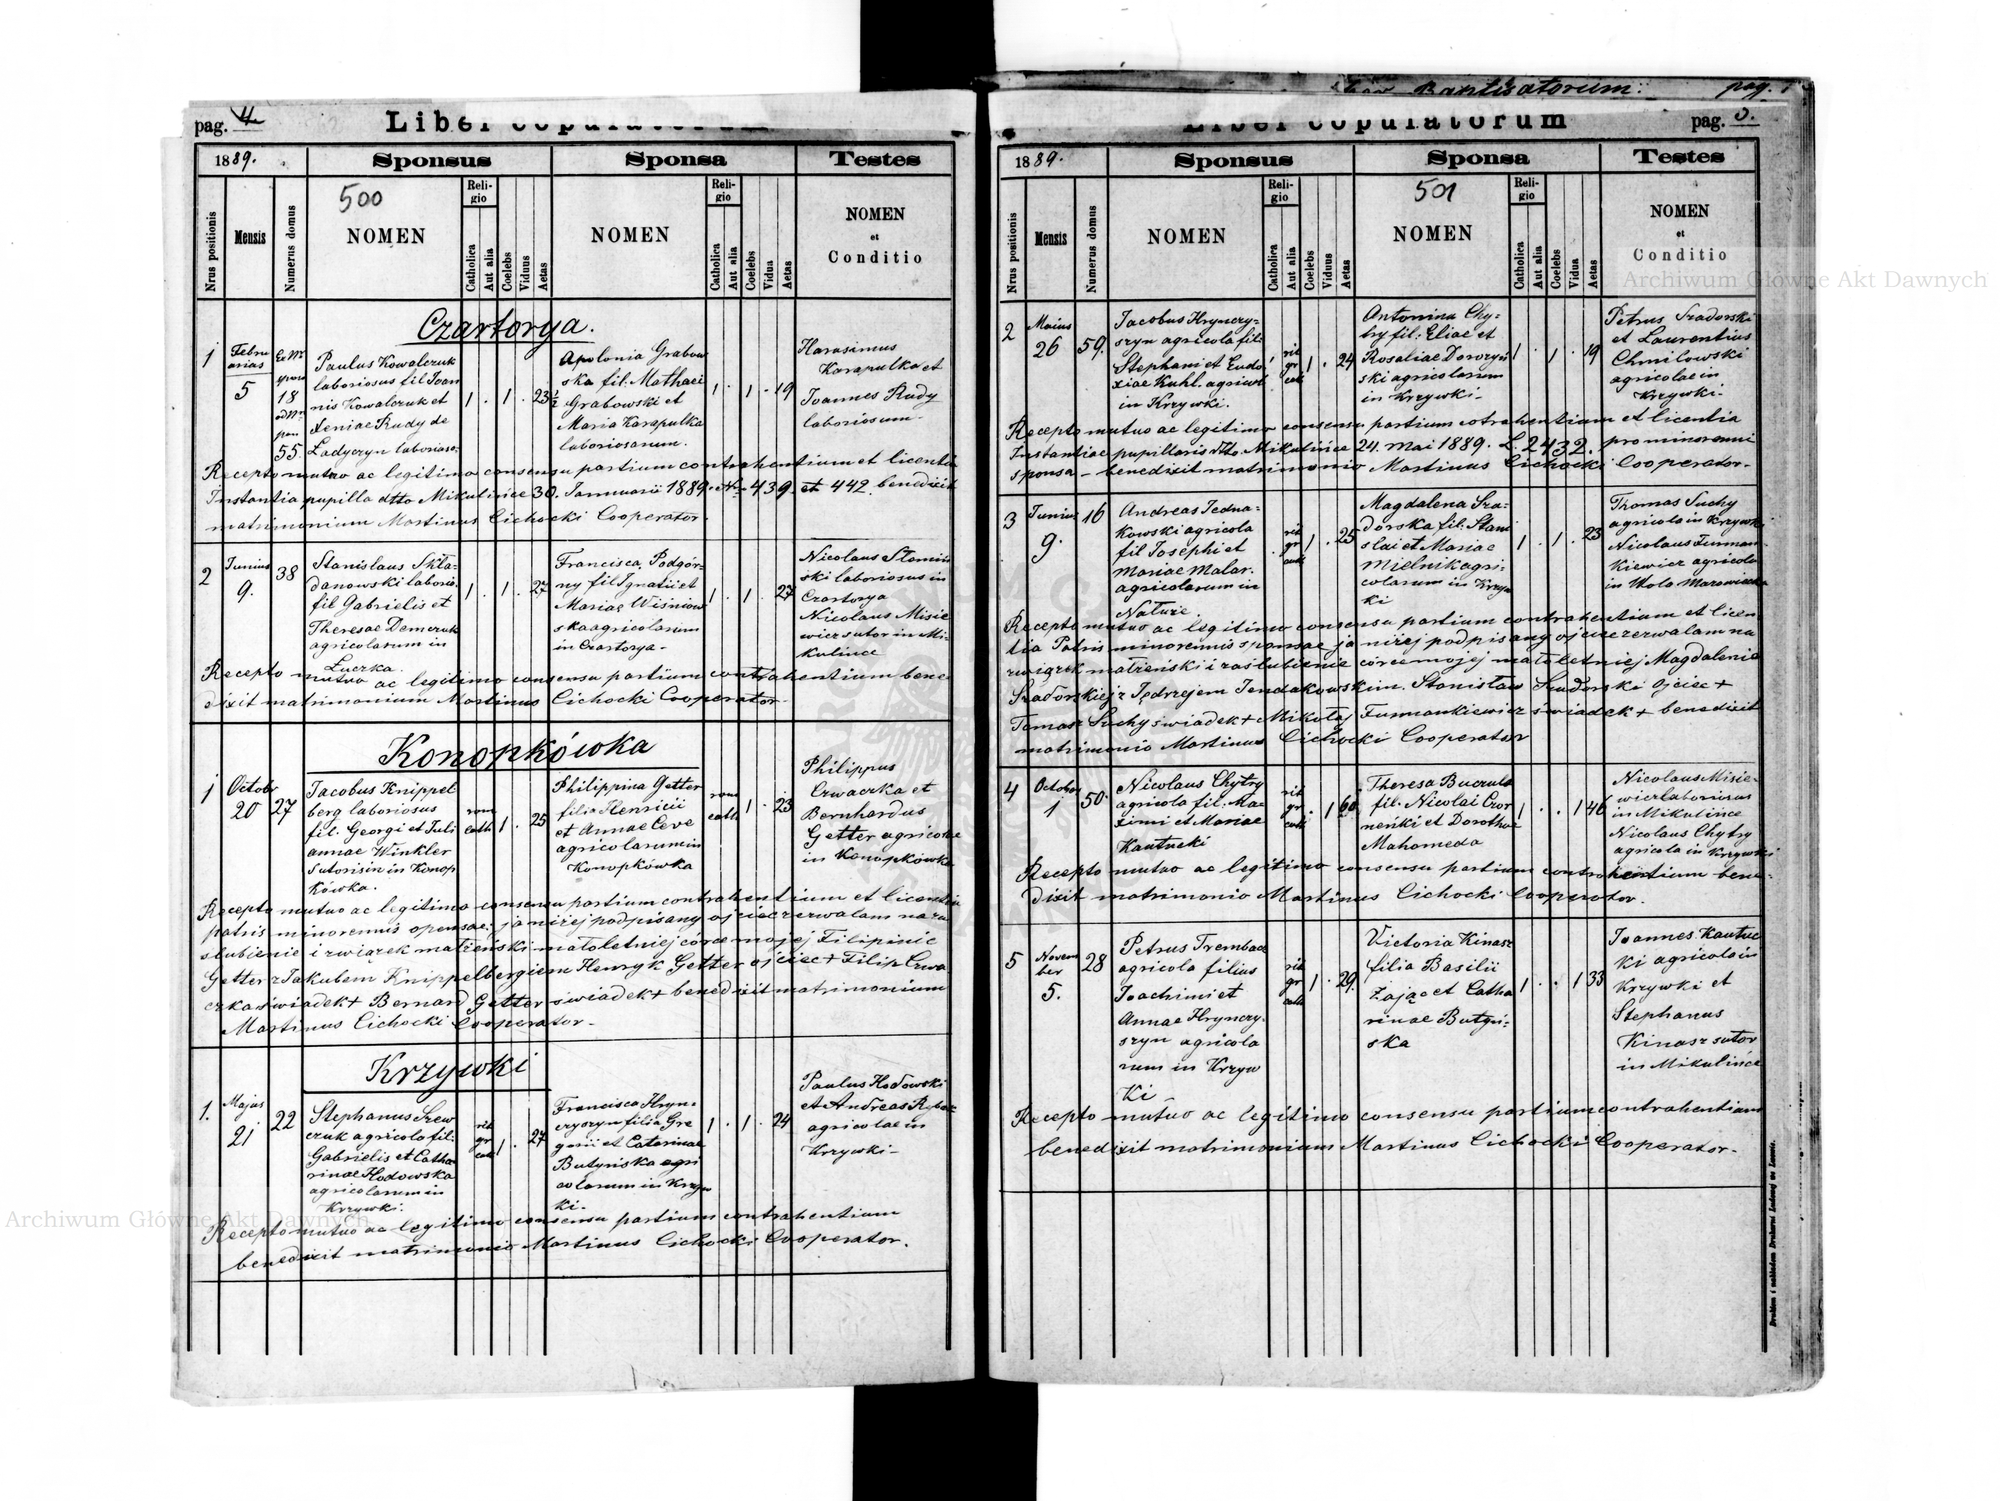 Liber Baptisatorum.
pag. 1
pag. 4
Liber copulatorum
1889.
Sponsus
Sponsa
Testes
Nrus positionis
Mensis
Numerus domus
500
NOMEN
Religio
Catholica
Aut alia
Coelebs
Viduus
Aetas
NOMEN
Religio
Catholica
Aut alia
Coelebs
Vidua
Aetas
NOMEN
et
Conditio
Czartorya.
1
Febru
arius
5
18
55.
Paulus Kowalczuk
laboriosus fil Joan
nis Kowalczuk et
Xeniae Rudy de
Ladyczyn laborioso.
1 . 1 . 23 1/2
Apolonia Grabow
ska fil: Mathaei
Grabowski et
Maria Karapulka
laboriosarum.
1 . 1 . 19
Harasimus
Karapulka et
Joannes Rudy
laboriosum-
Recepto mutuo ac legitimo consensu partium contrahentium et licentia
Instantia pupilla dtto Mikulińce 30. Januarii 1889. No 439. et 442. benedixit
matrimonium Martinus Cichocki Cooperator.
2
Junius
9.
38
Stanislaus Skła
danowski laborio.
fil Gabrielis et
Theresae Demczuk
agricolarum in
Łuczka.
1 . 1 . 27
Francisca Podgór-
ny fil Ignatii et
Mariae Wiśniow
ska agricolarum
in Czartorya-
1 . 1 . 27
Nicolaus Slomiń
ski laboriosus in
Czartorya
Nicolaus Misie
wicz sutor in Mi-
kulińce
Recepto mutuo ac legitimo consensu partium contrahentium bene
dixit matrimonium Martinus Cichocki Cooperator-
Konopkówka
1
Octobr
20
27
Jacobus Knippel
berg laboriosus
fil. Georgi et Juli
annae Winkler
Sutorisin in Konop
kówka.
rom
cath 1 . 25
Philippina Getter
filia Henricii
et Annae Ceve
agricolarum in
Konopkówka
rom
cath 1 . 23
Philippus
Czwaczka et
Bernhardus
Getter agricolae
in Konopkówka
Recepto mutuo ac legitimo consensu partium contrahentium et licentia
patris minorennis sponsae: ja niżej podpisany ojciec zezwalam na za
ślubienie i związek małżeński małoletniej córce mojej Filipinie
Getter z Jakubem Knippelbergiem Henryk Getter ojciec + Filip Czwa
czka świadek + Bernard Getter świadek + benedixit matrimonium
Martinus Cichocki Cooperator-
Krzywki
1.
Majus
21
22
Stephanus Szew
czuk agricola fil:
Gabrielis et Catha
rinae Hodowska
agricolarum in
Krzywki.
rit
gr
cat 1 . 27
Francisca Hryn-
czyszyn filia Gre
gorii et Catarinae
Butyńska agri
colarum in Krzyw
ki-
1 . 1 . 24
Paulus Hodowski
et Andreas
agricolae in
Krzywki-
Recepto mutuo ac legitimo consensu partium contrahentium
benedixit matrimonio Martinus Cichocki Cooperator.
Liber copulatorum
pag. 5.
1889.
Sponsus
Sponsa
Testes
Nrus positionis
Mensis
Numerus domus
NOMEN
Religio
Catholica
Aut alia
Coelebs
Viduus
Aetas
501
NOMEN
Religio
Catholica
Aut alia
Coelebs
Vidua
Aetas
NOMEN
et
Conditio
2
Maius
26
59.
Jacobus Hrynczy-
szyn agricola fil:
Stephani et Eudo
xiae Kuhl. agricol
in Krzywki.
rit
gr
cat 1 . 24
Antonina Chy-
try fil: Eliae et
Rosaliae Dorożyń
ski agricolarum
in Krzywki-
1 . 1 . 19
Petrus Szadorski
et Laurentius
Chmilowski
agricolae in
Krzywki-
Recepto mutuo ac legitimo consensu partium cotrahentium et licentia
Instantiae pupillaris dtto Mikulińce 24. Mai 1889. L. 2432. pro minorenni
sponsa - benedixit matrimonio Martinus Cichocki Cooperator-
3
Junius
9.
16
Andreas Jedna-
kowski agricola
fil Josephi et
Mariae Malar.
agricolarum in
Naturze.
rit
gr
cat 1 . 25
Magdalena Sza-
dorska fil: Stani
slai et Mariae
Mielnik agri-
colarum in Krzyw
ki
1 . 1 . 23
Thomas Suchy
agricola in Krzywki
Nicolaus Furman-
kiewicz agricola
in Wola Mazowiecka
Recepto mutuo ac legitimo consensu partium contrahentium et licen
tia Patris minorennis sponsae ja niżej podpisany ojciec zezwalam na
związek małżeński i zaślubienie córce mojej małoletniej Magdalenie
Szadorskiej z Jędrzejem Jendakowskim. Stanisław Szadorski Ojciec +
Tomasz Suchy świadek + Mikołaj Furmankiewicz świadek + benedixit
matrimonio Martinus Cichocki Cooperator
4
October
1
50.
Nicolaus Chytry
agricola fil: Ma-
ximi et Mariae
Kautucki
rit
gr
cat . 1 60
Theresa Buczula
fil: Nicolai Czor
neńki et Dorothae
Mahomeda
1 . . 1 46
Nicolaus Misie-
wicz laboriosus
in Mikulińce
Nicolaus Chytry
agricola in Krzywki
Recepto mutuo ac legitimo consensu partium contrahentium bene-
dixit matrimonio Martinus Cichocki Cooperator.
5
Novem
ber
5.
28
Petrus Trembacz
agricola filius
Joachimi et
Annae Hrynczy-
szyn agricola
rum in Krzyw
ki
rit
gr
cat 1 . 29.
Victoria Kinasz
filia Basilii
Zając et Catha
rinae Butyń-
ska
1 . . 1 33
Joannes Kautuc
ki agricola in
Krzywki et
Stephanus
Kinasz sutor
in Mikulińce
Recepto mutuo ac legitimo consensu partium contrahentium
benedixit matrimonium Martinus Cichocki Cooperator-
Drukiem i nakładem Drukarni Ludowej we Lwowie.
Archiwum Główne Akt Dawnych
Archiwum Główne Akt Dawnych